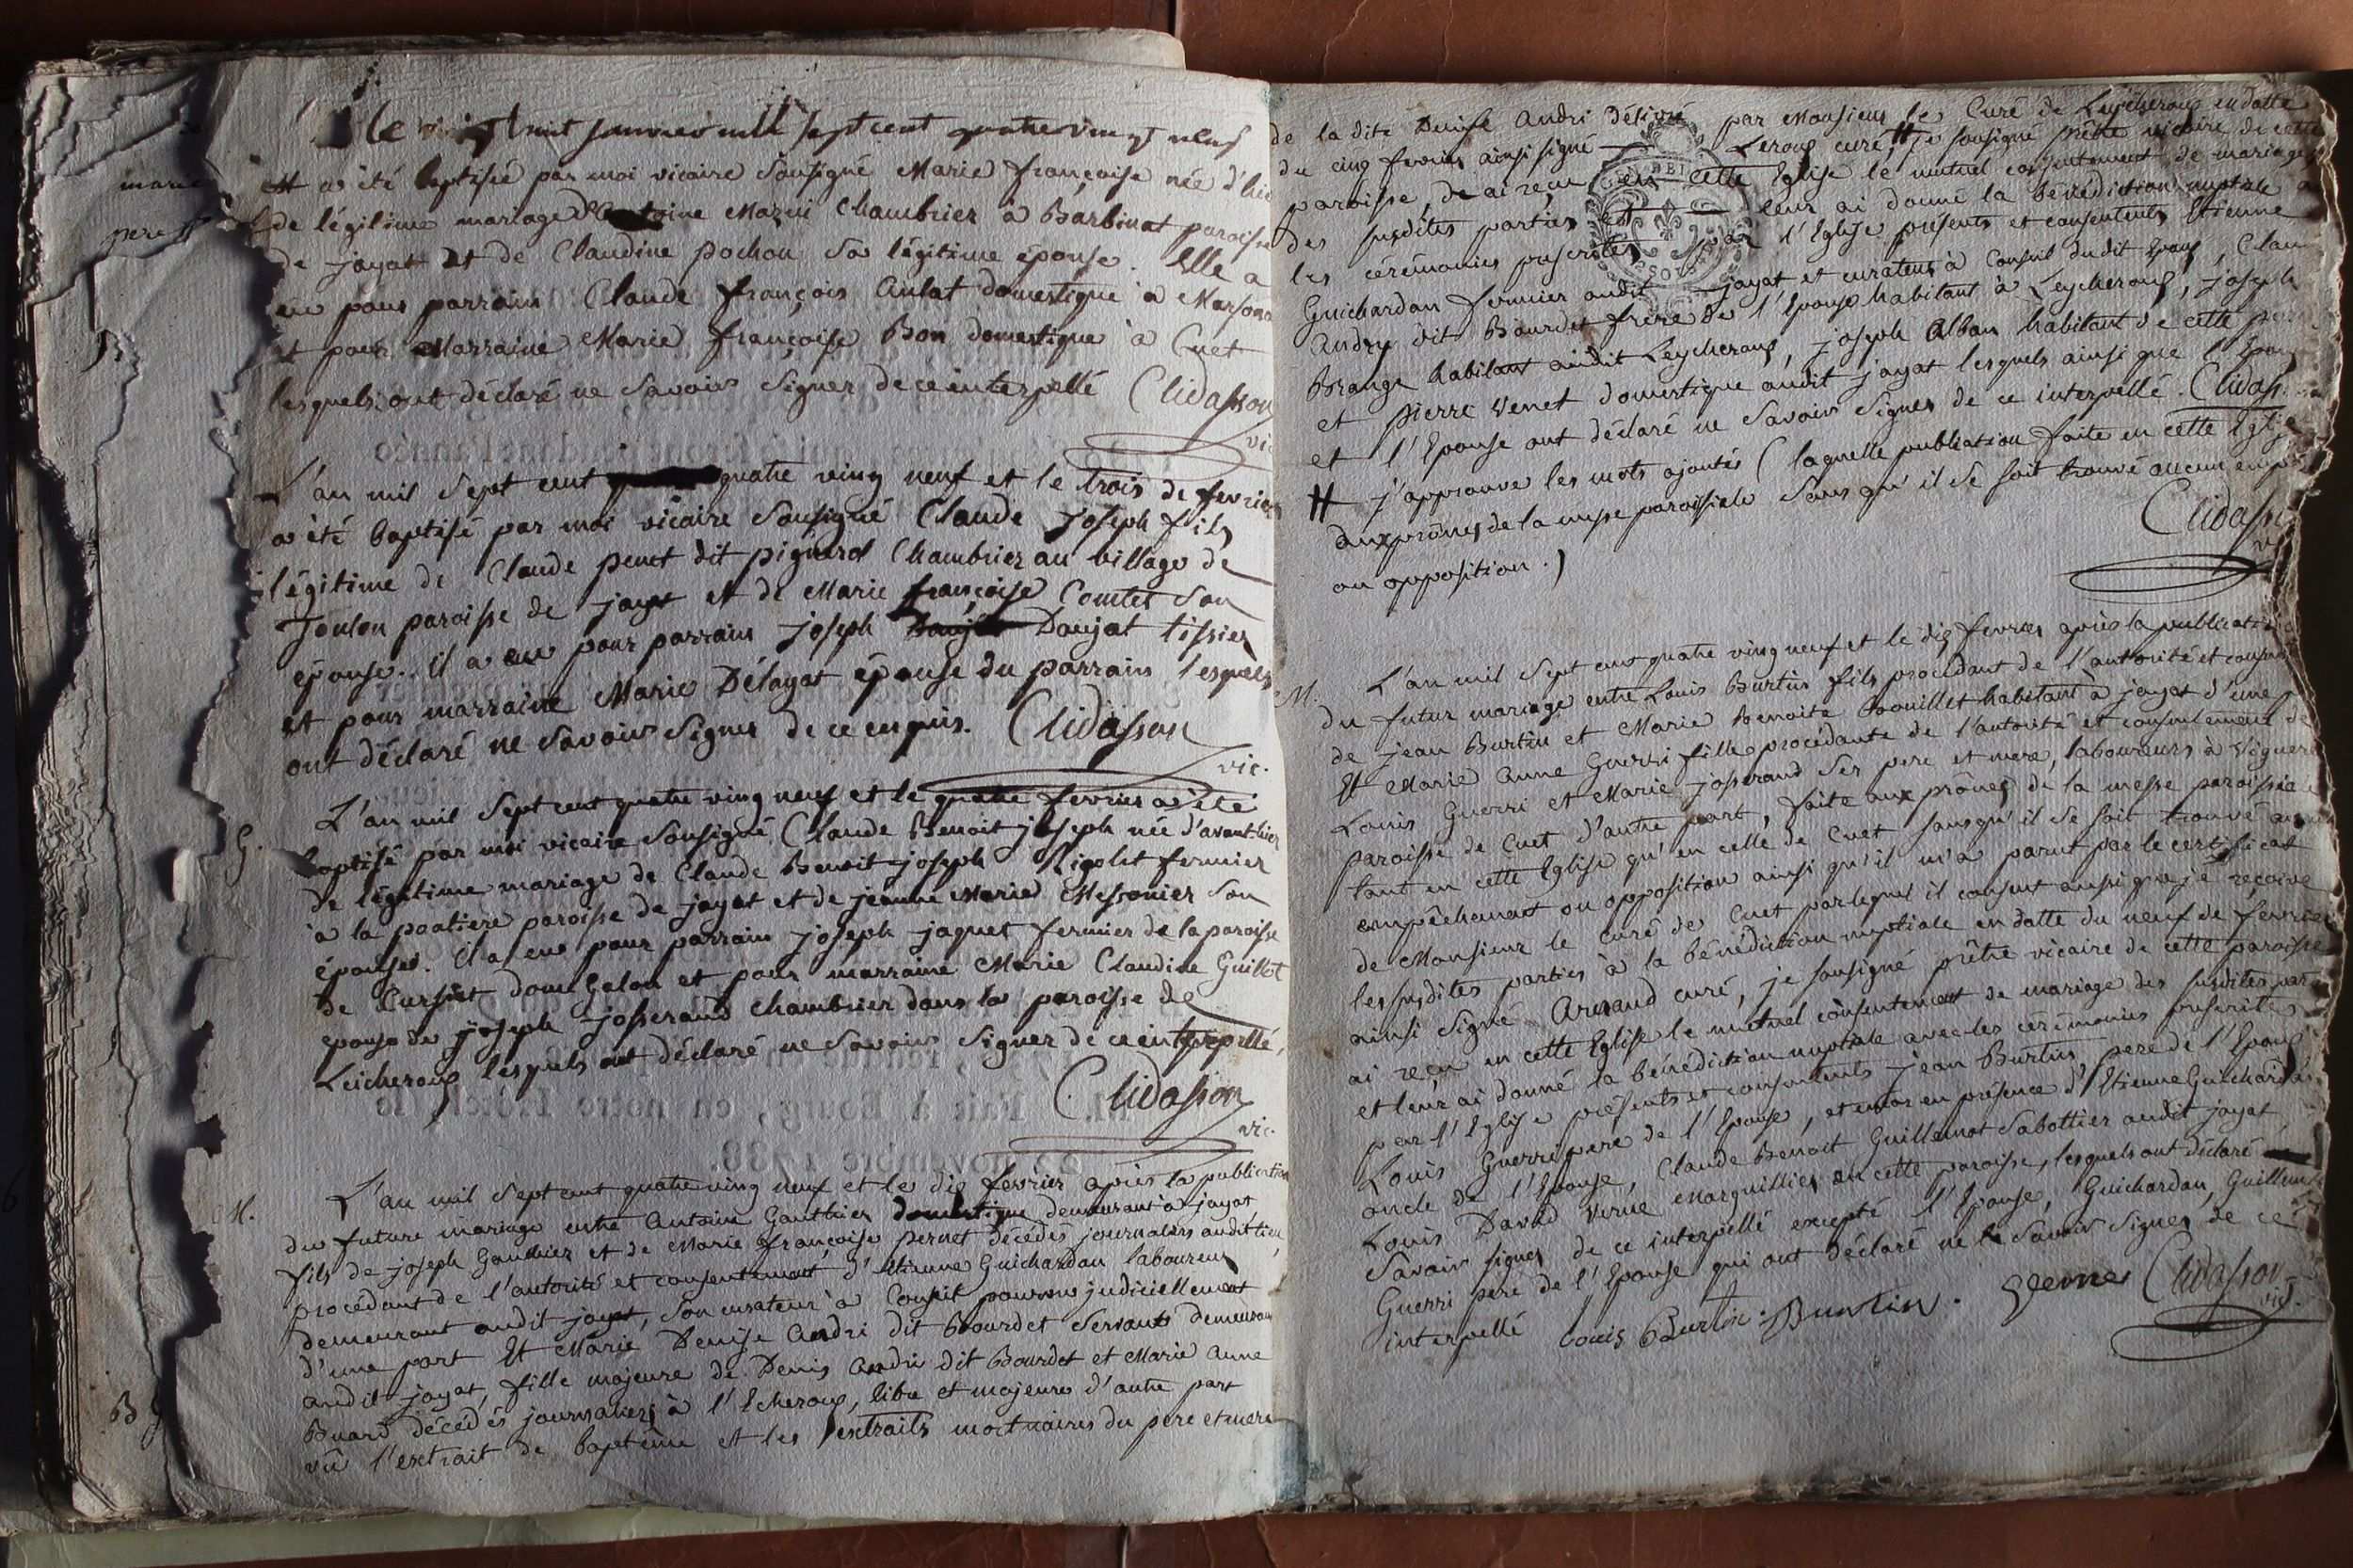 Le vingt huit janvier mill sept cent quatre vingt neuf
a été baptisée par moi vicaire Sousigné Marie françoise née d'hier
de légitime mariage d'Antoine Mazui Chambrier à Barbinat paroisse
de jayat et de Claudine pochon sa légitime épouse. Elle a
eu pour parrain Claude françois Aulat domestique à Marsona
et pour Marraine Marie françoise Bon domestique à Cuet
lesquels ont déclaré ne Savoir Signer de ce interpellé Clidasson
vic
L'an mil Sept cent quatre ving neuf et le trois de fevrier
a été baptisé par moi vicaire Sousigné Claude joseph fils
légitime de Claude penet dit pignard Chambrier au village de
Toulon paroisse de jayat et de Marie françoise Comtet son
épouse. il a eu pour parrain joseph Daujat tissier
et pour marraine Marie Délayat épouse du parrain lesquels
ont déclaré ne Savoir Signer de ce enquis. Clidasson
vic.
G.
L'an mil Sept cent quatre ving neuf et le quatre fevrier a été
baptisé par moi vicaire Sousigné Claude Benoit joseph née d'avant hier
de légitime mariage de Claude Benoit joseph Rigolet fermier
à la poatiere paroisse de jayat et de jeanne Marie Messonier Son
épouse. il a eu pour parrain joseph jaquet fermier de la paroisse
de Curssiat domgalon et pour marraine Marie Claudine Guillot
epouse de joseph josserand chambrier dans la paroisse de
Leicheroux lesquels ont déclaré ne Savoir Signer de ce interpellé.
Clidasson
vic.
M.
L'an mil Sept cent quatre ving neuf et le dix fevrier après la publication
du future mariage entre Antoine Gauthier domestique demeurant à jayat
fils de joseph Gauthier et de Marie françoise pernet décédés journaliers audit lieu,
procédant de l'autorité et consentement d'Etienne Guichardan laboureur
demeurant audit jayat, Son curateur à Conseil pourvu judiciellement
d'une part Et Marie Denise Andri dit Bourdet Servante demeurant
audit jayat, fille majeure de Denis Andri dit Bourdet et Marie Anne
Buard décédés journaliers à l'Echeroux, libre et majeure d'autre part
vû l'extrait de baptême et les extraits mortuaires du pere et mere
de la dite Denise Andri Délivré par Monsieur le Curé de Leycheroux en datte
du cinq fevrier ainsi signé Leroux curé, # je sousigné prêtre vicaire de cette
paroisse, ai reçu en cette Eglise le mutuel consentement de mariage
des susdites parties et leur ai donné la bénédiction nuptiale
les cérémonies prescrites par l'Eglise présents et consentents Etienne
Guichardan fermier audit jayat et curateur à Conseil dudit Epoux,
Andry dit Bourdet frere de l'Epouse habitant à Leycheroux, joseph
Brange habitant audit Leycheroux, joseph Alban habitant de cette
et pierre Venet domestique audit jayat lesquels ainsi que l'Epoux
et l'Epouse ont déclaré ne Savoir Signer de ce interpellé.
# j'approuve les mots ajoutés (laquelle publication faite en cette Eglise
aux prônes de la messe paroissiale Sans qu'il se soit trouvé aucun
ou opposition.)
M.
L'an mil Sept cent quatre ving neuf et le dix fevrier après la publication
du futur mariage entre Louis Burtin fils procédant de l'autorité et
de jean Burtin et Marie benoite Bouillet habitant à jayat d'une
Et Marie Anne Guerri fille procédante de l'autorité et consentement de
Louis Guerri et Marie josserand Ses pere et mere, laboureurs à
paroisse de Cuet d'autre part, faite aux prônes de la messe paroissiale
tant en cette Eglise qu'en celle de Cuet sans qu'il se soit trouvé
empêchement ou opposition ainsi qu'il m'a parut par le certificat
de Monsieur le Curé de Cuet par lequel il consent aussi que je reçoive
les susdites parties à la bénédiction nuptiale en datte du neuf de fevrier
ainsi Signé Armand curé, je sousigné prêtre vicaire de cette paroisse
ai reçu en cette Eglise le mutuel consentement de mariage des susdites
et leur ai donné la bénédiction nuptiale avec les cérémonies prescrites
par l'Eglise présents et consentents jean Burtin pere de l'Epoux
Louis Guerri pere de l'Epouse, et encor en présence d'Etienne Guichardan
oncle de l'Epouse, Claude Benoit Guillemot Sabottier audit jayat
Louis David Verne Marguillier en cette paroisse, lesquels ont déclaré
Savoir signer de ce interpellé excepté l'Epouse, Guichardan,
Guerri pere de l'Epouse qui ont déclaré ne le Savoir Signer de ce
interpellé Louis Burtin. Burtin. Verne Clidasson
vic.